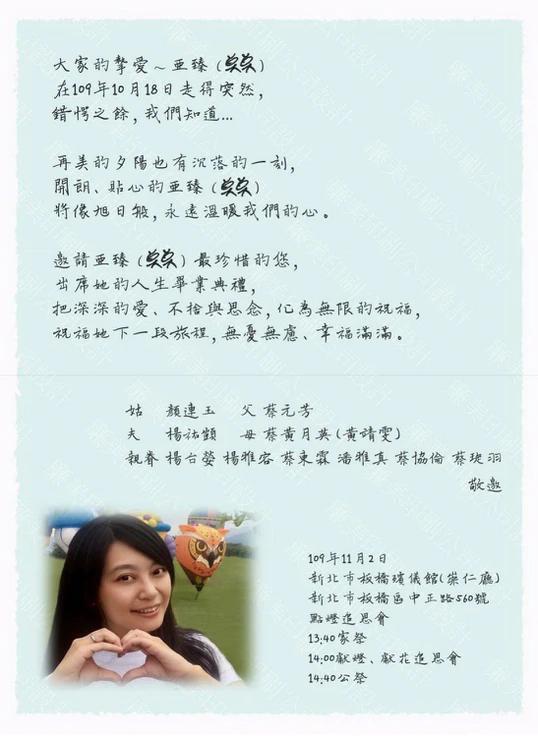 大家的摯愛～亞臻(臭臭)
在109年10月18日走得突然，
錯愕之餘，我們知道…
再美的夕陽也有沉落的一刻，
開朗、貼心的亞臻(臭臭)
將像旭日般，永遠溫暖我們的心。
邀請亞臻(臭臭)最珍惜的您，
出席她的人生畢業典禮，
把深深的愛、不捨與思念，化為無限的祝福，
祝福她下一段旅程，無憂無慮、幸福滿滿。
姑 顏連玉 父 蔡元芳
夫 楊祐顗 母 蔡黃月英(黃靖雯)
親眷 楊台瑩 楊雅容 蔡東霖 潘雅真 蔡協倫 蔡琰羽
敬邀
109年11月2日
新北市板橋殯儀館(崇仁廳)
新北市板橋區中正路560號
點燈追思會
13:40家祭
14:00獻燈、獻花追思會
14:40公祭